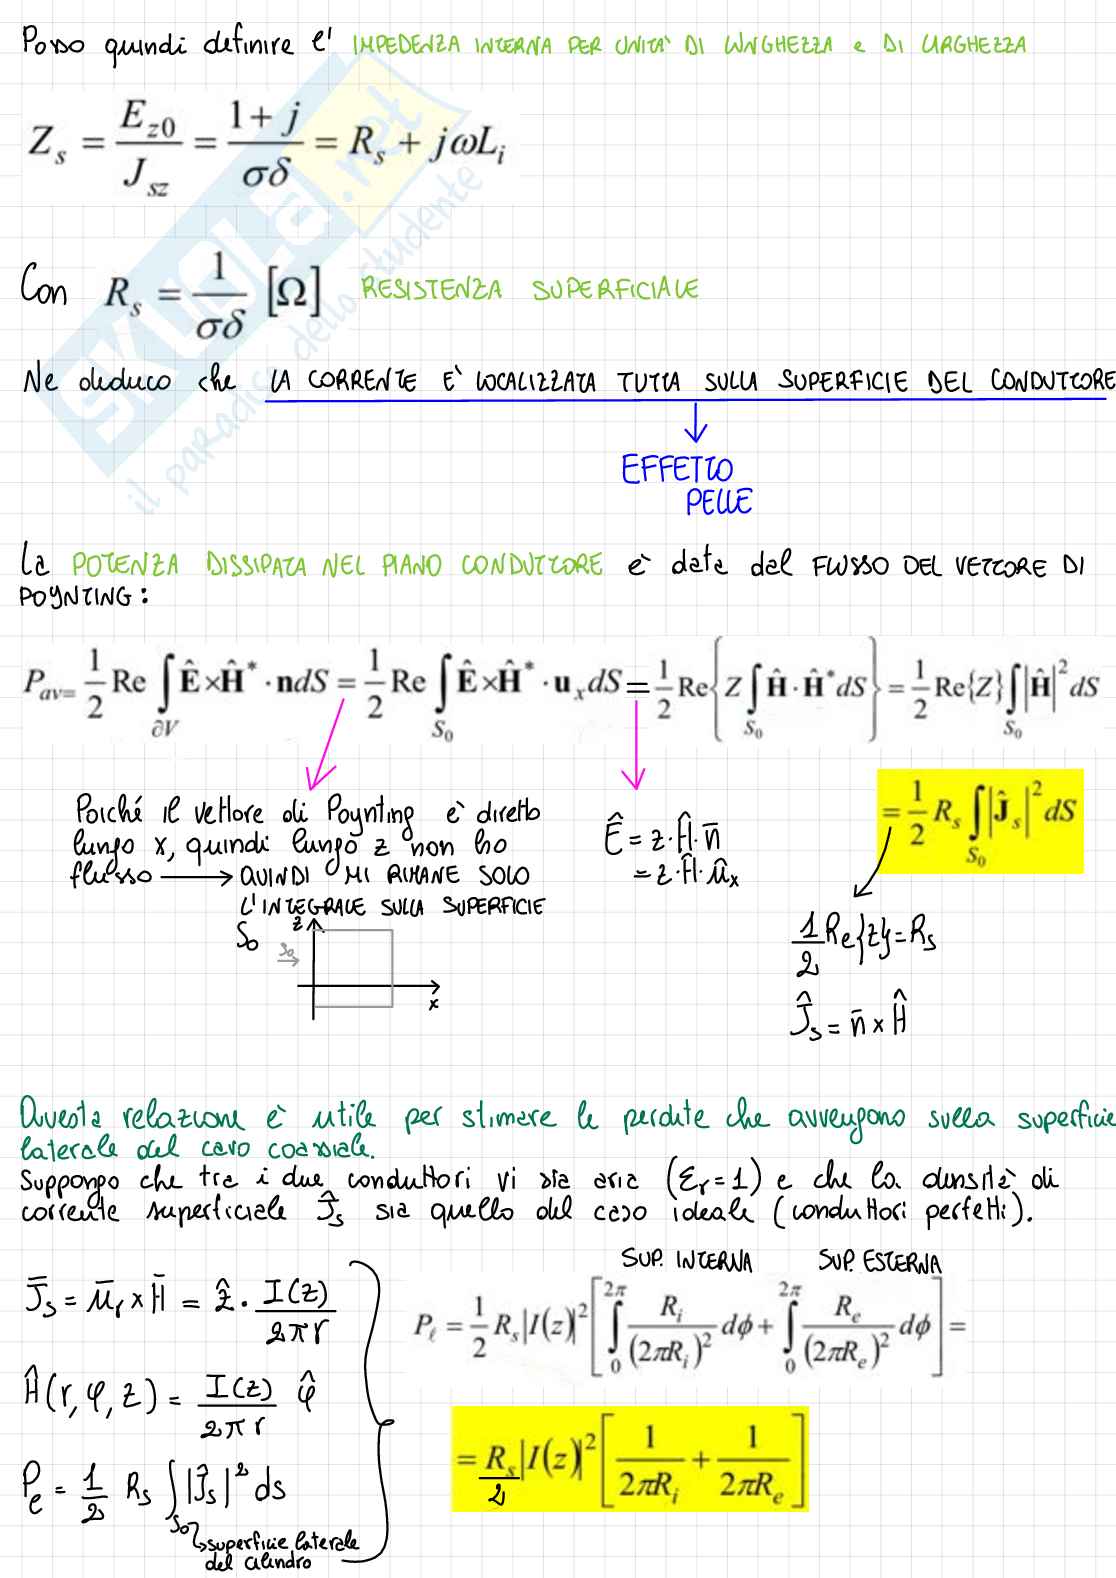 Posso quindi definire l' IMPEDENZA INTERNA PER UNITA' DI LUNGHEZZA e DI LARGHEZZA
Z_s = E_{z0} / J_{sz} = (1 + j) / (σδ) = R_s + jωL_i
Con R_s = 1 / (σδ) [Ω] RESISTENZA SUPERFICIALE
Ne deduco che LA CORRENTE E' LOCALIZZATA TUTTA SULLA SUPERFICIE DEL CONDUTTORE
EFFETTO
PELLE
La POTENZA DISSIPATA NEL PIANO CONDUTTORE è data dal FLUSSO DEL VETTORE DI
POYNTING:
P_{av=} 1/2 Re ∫_{∂V} Ê × Ĥ* · n dS = 1/2 Re ∫_{S_0} Ê × Ĥ* · u_x dS = 1/2 Re{Z ∫_{S_0} Ĥ · Ĥ* dS} = 1/2 Re{Z} ∫_{S_0} |Ĥ|² dS
= 1/2 R_s ∫_{S_0} |Ĵ_s|² dS
Poiché il vettore di Poynting è diretto
lungo x, quindi lungo z non ho
flusso → QUINDI MI RIMANE SOLO
L'INTEGRALE SULLA SUPERFICIE
S_0
z
S_0
x
Ê = z · Ĥ · n̄
= z · Ĥ · û_x
1/2 Re{z} = R_s
Ĵ_s = n̄ × Ĥ
Questa relazione è utile per stimare le perdite che avvengono sulla superficie
laterale del cavo coassiale.
Suppongo che tra i due conduttori vi sia aria (ε_r = 1) e che la densità di
corrente superficiale Ĵ_s sia quello del caso ideale (conduttori perfetti).
J̄_s = ū_r × H̄ = ẑ · I(z) / 2πr
Ĥ(r, φ, z) = I(z) / 2πr φ̂
P_e = 1/2 R_s ∫_{S_0} |Ĵ_s|² ds
superficie laterale
del cilindro
SUP. INTERNA SUP. ESTERNA
P_ℓ = 1/2 R_s |I(z)|² [∫_0^{2π} R_i / (2πR_i)² dϕ + ∫_0^{2π} R_e / (2πR_e)² dϕ] =
= R_s / 2 |I(z)|² [1 / 2πR_i + 1 / 2πR_e]
SKUOLA.net
il paradiso dello studente